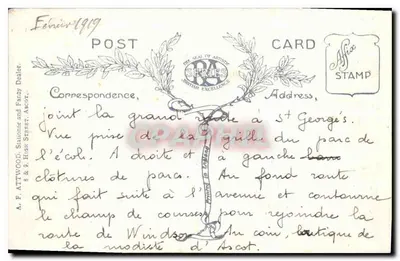 Février 1919
POST CARD
Affix
STAMP
THE SEAL OF ARTISTIC
BRITISH EXCELLENCE
Correspondence, Address,
joint la grand route à St George's
Vue prise de la grille du parc de
l'école. A droite et à gauche
clôtures de parcs. Au fond route
qui fait suite à l'avenue et contourne
le champ de courses pour rejoindre la
route de Windsor Au coin, boutique de
la modiste d'Ascot.
A. F. ATTWOOD, Stationer and Fancy Dealer,
HIGH STREET, ASCOT.